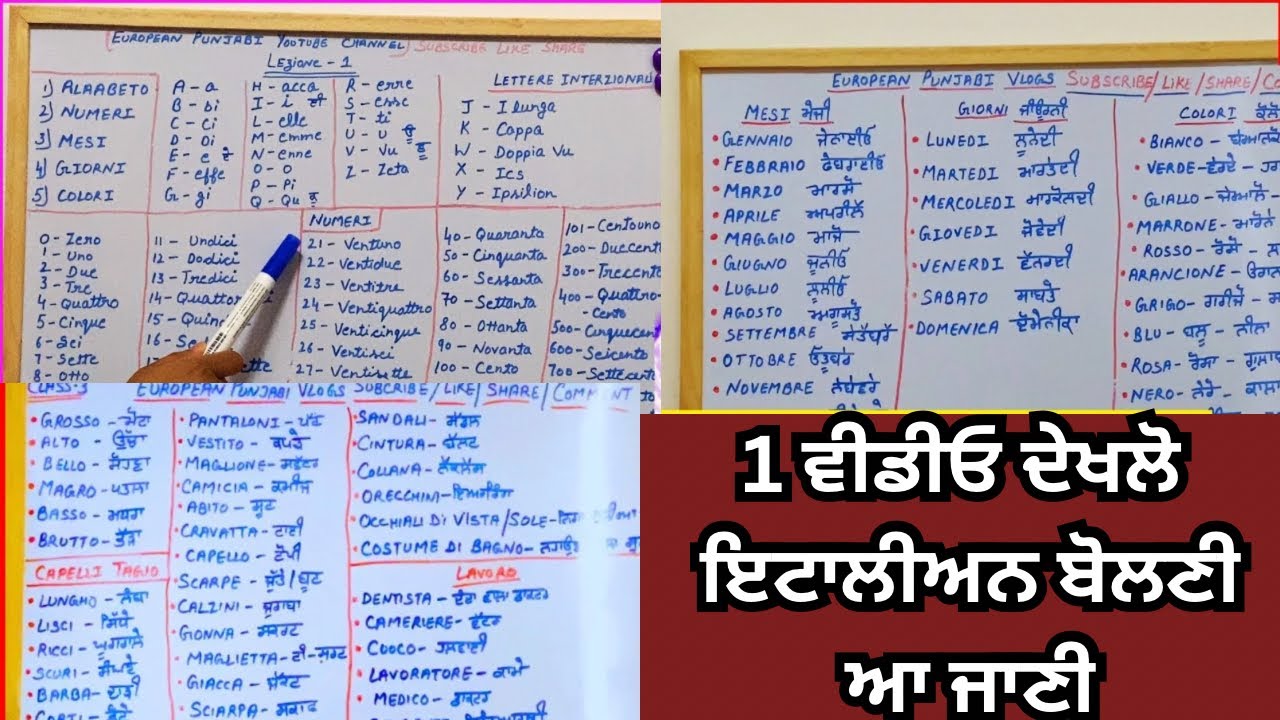 (EUROPEAN PUNJABI YOUTUBE CHANNEL) SUBSCRIBE LIKE SHARE
Lezione - 1
1) ALAABETO
2) NUMERI
3) MESI
4) GIORNI
5) COLORI
A - a
B - bi
C - ci
D - Di
E - e ਏ
F - effe
G - gi
H - acca
I - i ਈ
L - elle
M - emme
N - enne
O - O
P - Pi
Q - Qu ਕੂ
R - erre
S - esse
T - ti
U - U ਊ
V - Vu ਵੂ
Z - Zeta
LETTERE INTERZIONALI
J - I lunga
K - Cappa
W - Doppia Vu
X - Ics
Y - Ipsilion
NUMERI
0 - Zero
1 - Uno
2 - Due
3 - Tre
4 - Quattro
5 - Cinque
6 - Sei
7 - Sette
8 - Otto
11 - Undici
12 - Dodici
13 - Tredici
14 - Quattor
15 - Quin
16 - Se
21 - Ventuno
22 - Ventidue
23 - Ventitre
24 - Ventiquattro
25 - Venticinque
26 - Ventisei
27 - Ventisette
40 - Quaranta
50 - Cinquanta
60 - Sessanta
70 - Settanta
80 - Ottanta
90 - Novanta
100 - Cento
101 - Centouno
200 - Duecent
300 - Trecento
400 - Quattro-
Cento
500 - Cinquecent
600 - Seicento
700 - Settecen
EUROPEAN PUNJABI VLOGS SUBSCRIBE/LIKE/SHARE/CO
MESI ਮੇਜੀ
GENNAIO ਜੇਨਾਈਓ
FEBBRAIO ਫੇਬਰਾਈਓ
MARZO ਮਾਰਸੋ
APRILE ਅਪਰੀਲੇ
MAGGIO ਮਾਜੋ
GIUGNO ਜੂਨੀਓ
LUGLIO ਲੂਲੀਓ
AGOSTO ਅਗੂਸਤੋ
SETTEMBRE ਸੇਤੰਬਰੇ
OTTOBRE
NOVEMBRE
GIORNI
LUNEDI ਲੂਨੇਦੀ
MARTEDI ਮਾਰਤੇਦੀ
MERCOLEDI ਮਾਰਕੋਲਦੀ
GIOVEDI ਜੋਵੇਦੀ
VENERDI ਵੇਨਰਦੀ
SABATO ਸਾਬਤੋ
DOMENICA ਦੋਮੇਨੀਕਾ
COLORI
BIANCO -
VERDE - ਵੇਰਦੇ -
GIALLO - ਜੇਆਲੋ -
MARRONE - ਮਾਰੋਨੇ
ROSSO - ਰੋਸੋ -
ARANCIONE -
GRIGO - ਗਰੀਜੋ -
BLU - ਬਲੂ - ਨੀਲਾ
ROSA - ਰੋਸਾ - ਗੁਲਾਬ
NERO - ਨੇਰੋ - ਕਾਲਾ
CLASS-3 EUROPEAN PUNJABI VLOGS SUBCRIBE/LIKE/SHARE/COMMENT
GROSSO - ਮੋਟਾ
ALTO - ਉੱਚਾ
BELLO - ਸੋਹਣਾ
MAGRO - ਪਤਲਾ
BASSO - ਮਧਰਾ
BRUTTO -
CAPELLI TAGIO
LUNGHO - ਲੰਬਾ
LISCI - ਸਿੱਧੇ
RICCI - ਘੁੰਗਰਾਲੇ
SCURI -
BARBA - ਦਾੜੀ
PANTALONI - ਪੈਂਟ
VESTITO - ਕਪੜੇ
MAGLIONE - ਸਵੈਟਰ
CAMICIA - ਕਮੀਜ
ABITO - ਸੂਟ
CRAVATTA - ਟਾਈ
CAPELLO - ਟੋਪੀ
SCARPE - ਜੁੱਤੇ/ਬੂਟ
CALZINI - ਜੁਰਾਬਾ
GONNA - ਸਕਰਟ
MAGLIETTA - ਟੀ-ਸ਼ਰਟ
GIACCA - ਜੈਕਟ
SCIARPA - ਸਕਾਫ
SANDALI - ਸੈਂਡਲ
CINTURA - ਬੈਲਟ
COLLANA - ਨੈਕਲੈਸ
ORECCHINI - ਇਅਰਰਿੰਗ
OCCHIALI DI VISTA/SOLE -
COSTUME DI BAGNO -
LAVORO
DENTISTA - ਦੰਦਾ ਵਾਲਾ ਡਾਕਟਰ
CAMERIERE - ਵੇਟਰ
CUOCO - ਹਲਵਾਈ
LAVORATORE - ਕਾਮੇ
MEDICO - ਡਾਕਟਰ
1 ਵੀਡੀਓ ਦੇਖਲੋ
ਇਟਾਲੀਅਨ ਬੋਲਣੀ
ਆ ਜਾਣੀ